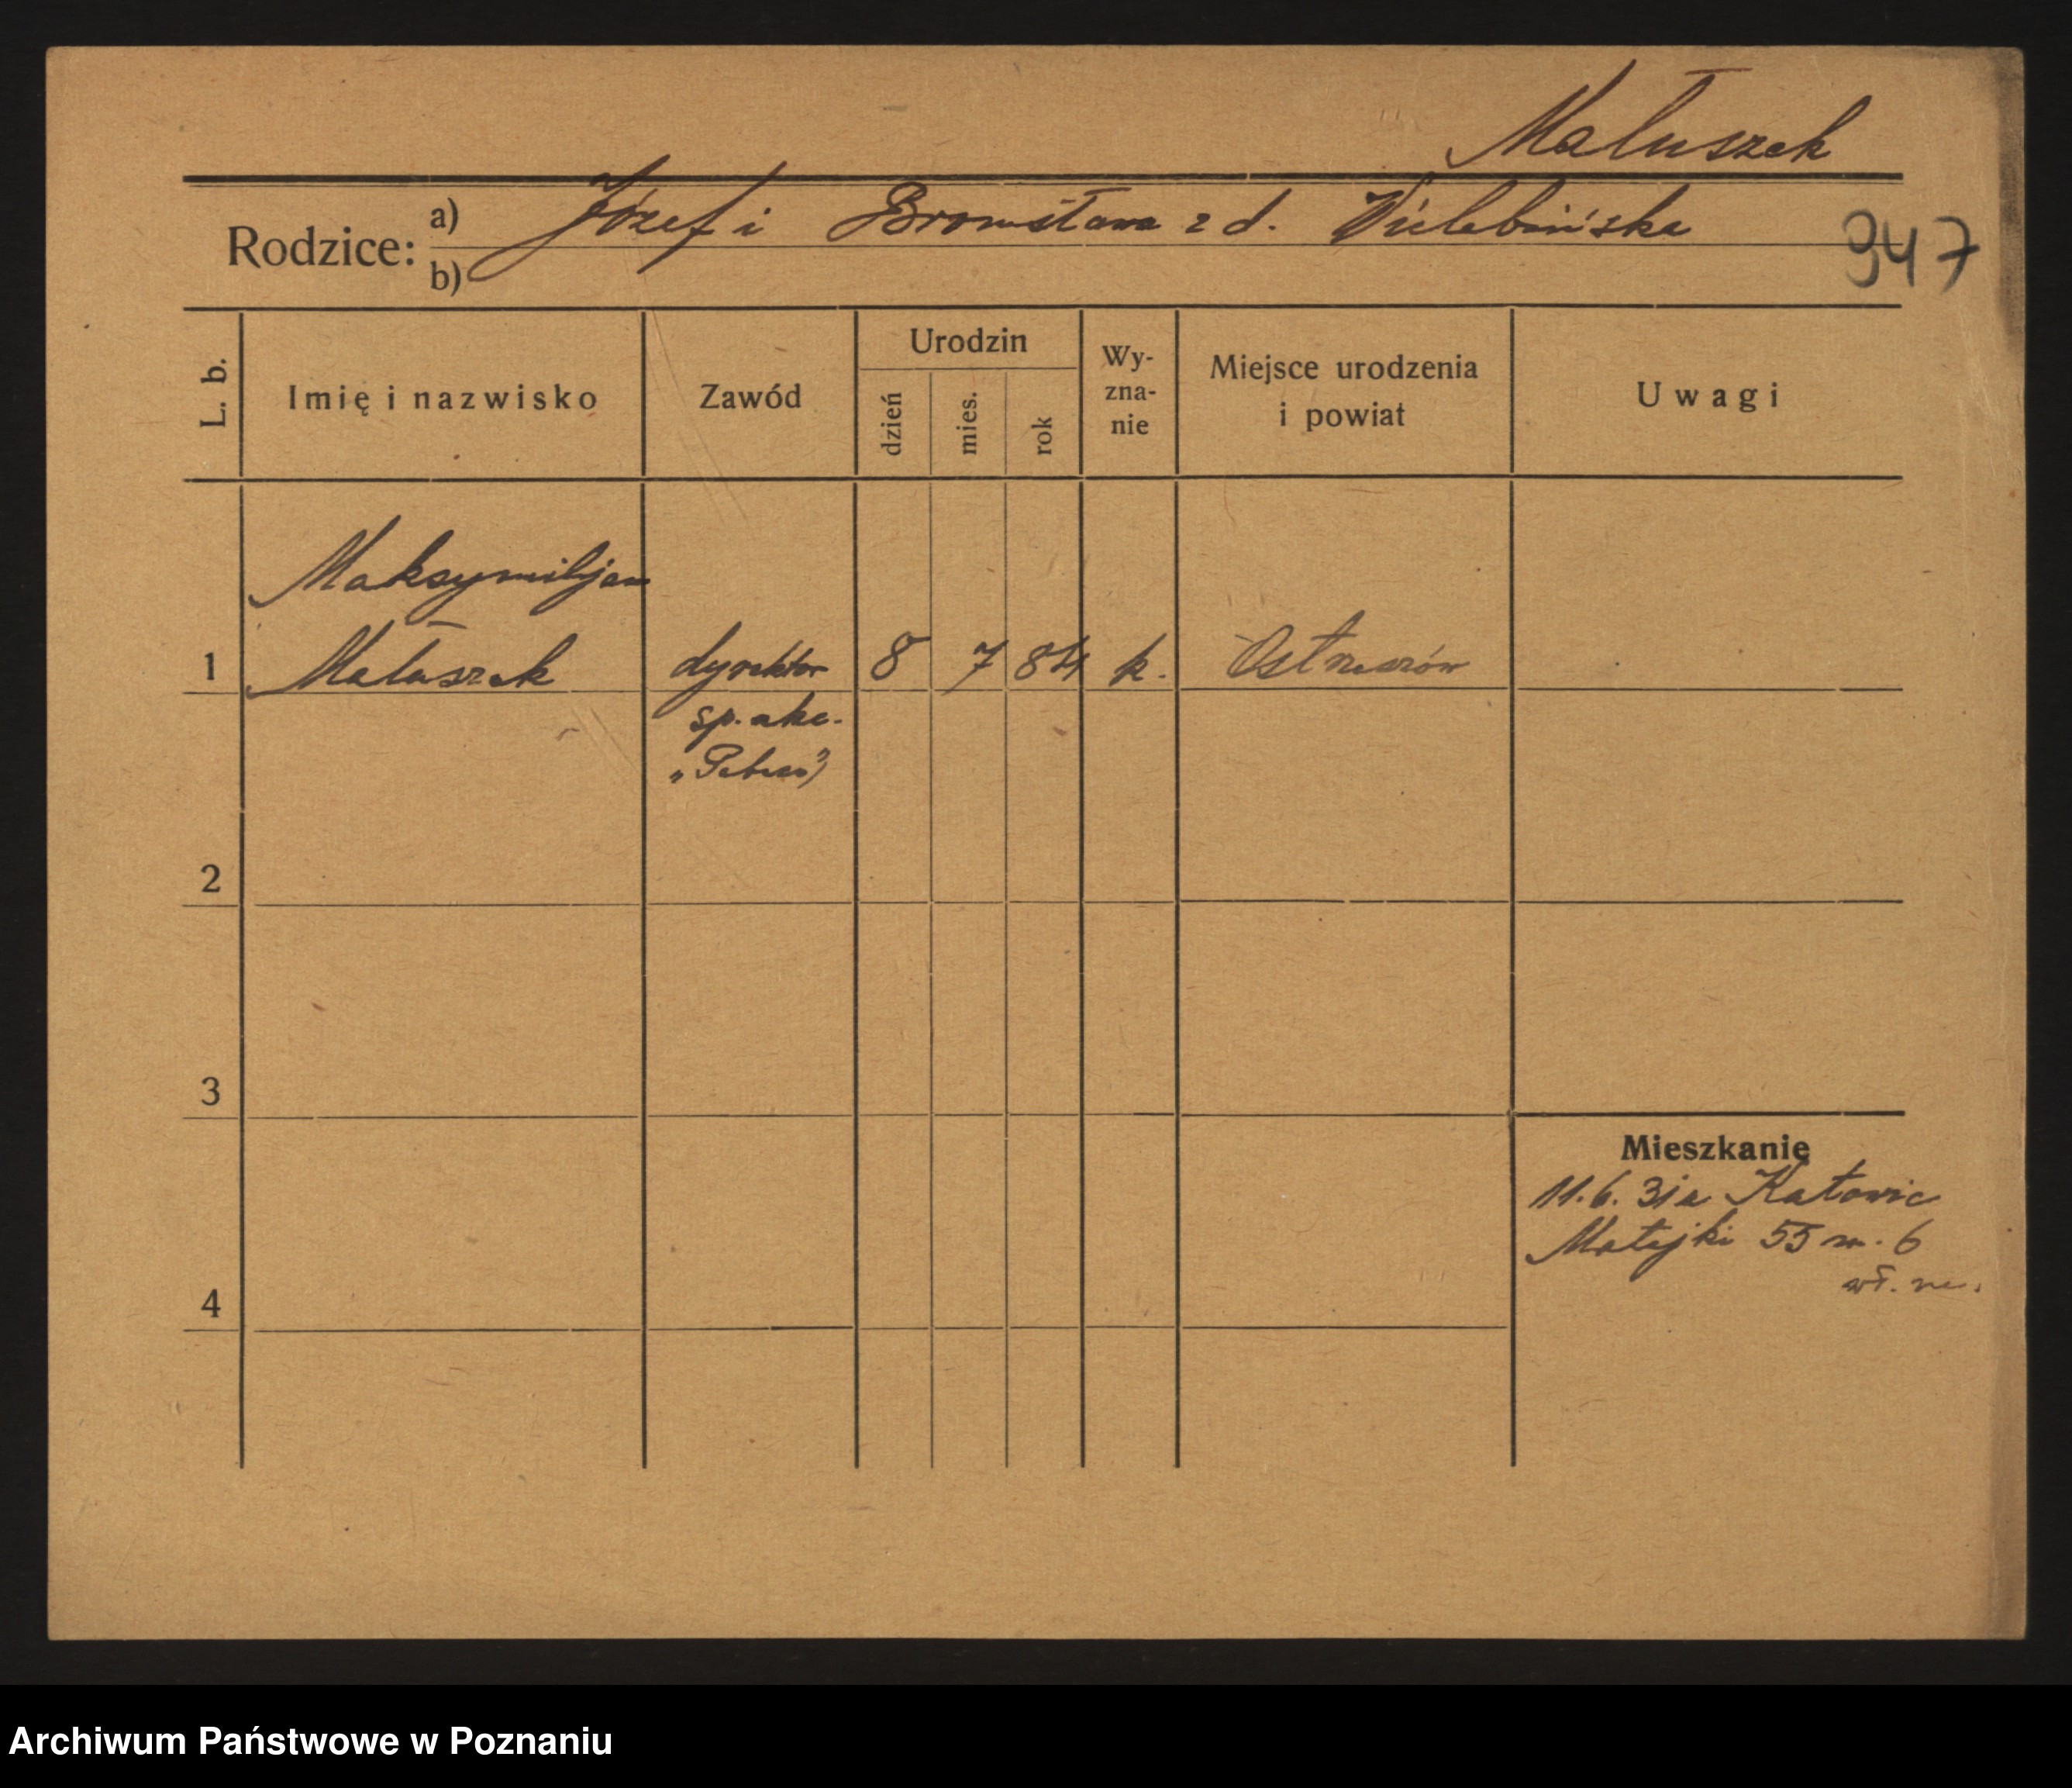 Matuszek
Rodzice: a) Józef i Bronisława z d. Wielebińska
b)
947
L. b.
Imię i nazwisko
Zawód
Urodzin
dzień
mies.
rok
Wy-
zna-
nie
Miejsce urodzenia
i powiat
Uwagi
Maksymiljan
1 Matuszek dyrektor 8 7 84 k. Ostrzeszów
sp. akc.
2
3
Mieszkanie
11.6.31 z Katowic
Matejki 55 m. 6
4
Archiwum Państwowe w Poznaniu